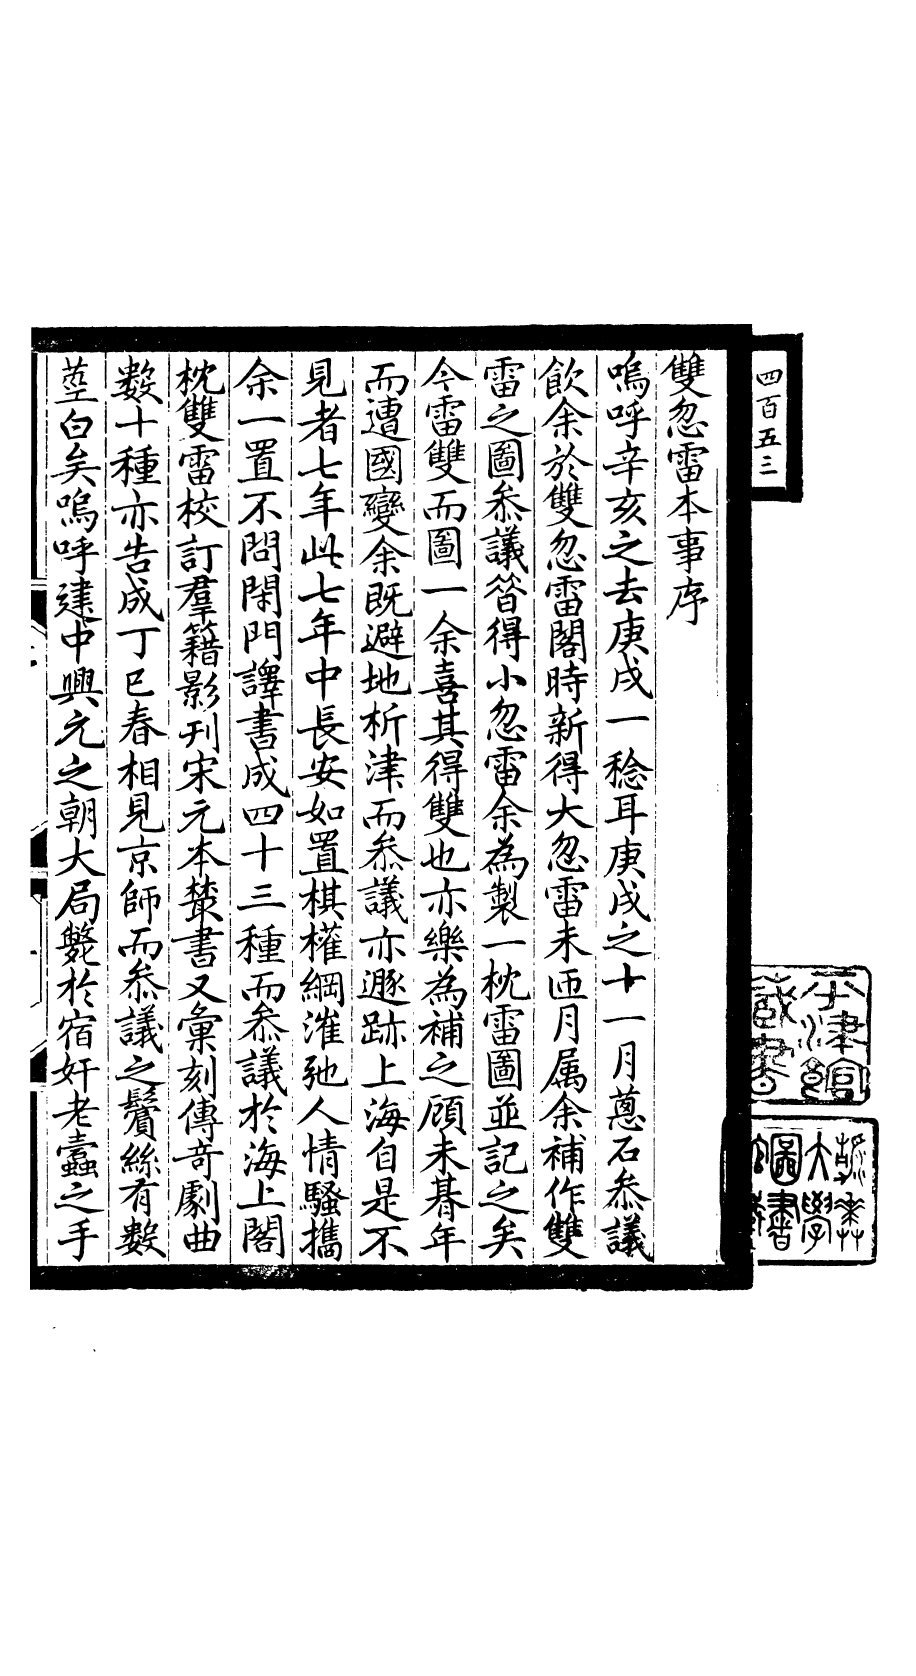 四百五三
雙忽雷本事序
嗚呼辛亥之去庚戌一稔耳庚戌之十一月蔥石叅議
飲余於雙忽雷閣時新得大忽雷未匝月属余補作雙
雷之圖叅議㬱得小忽雷余為製一枕雷圖並記之矣
今雷雙而圖一余喜其得雙也亦樂為補之顧未朞年
而遭國變余既避地析津而叅議亦遯跡上海自是不
見者七年此七年中長安如置棋權綱漼弛人情騷擕
余一置不問閑門譯書成四十三種而叅議於海上閣
枕雙雷校訂羣籍影刊宋元本叢書又彙刻傳奇劇曲
數十種亦告成丁巳春相見京師而叅議之鬢絲有數
莖白矣嗚呼建中興元之朝大局斃於宿奸老蠹之手
大學
圖書